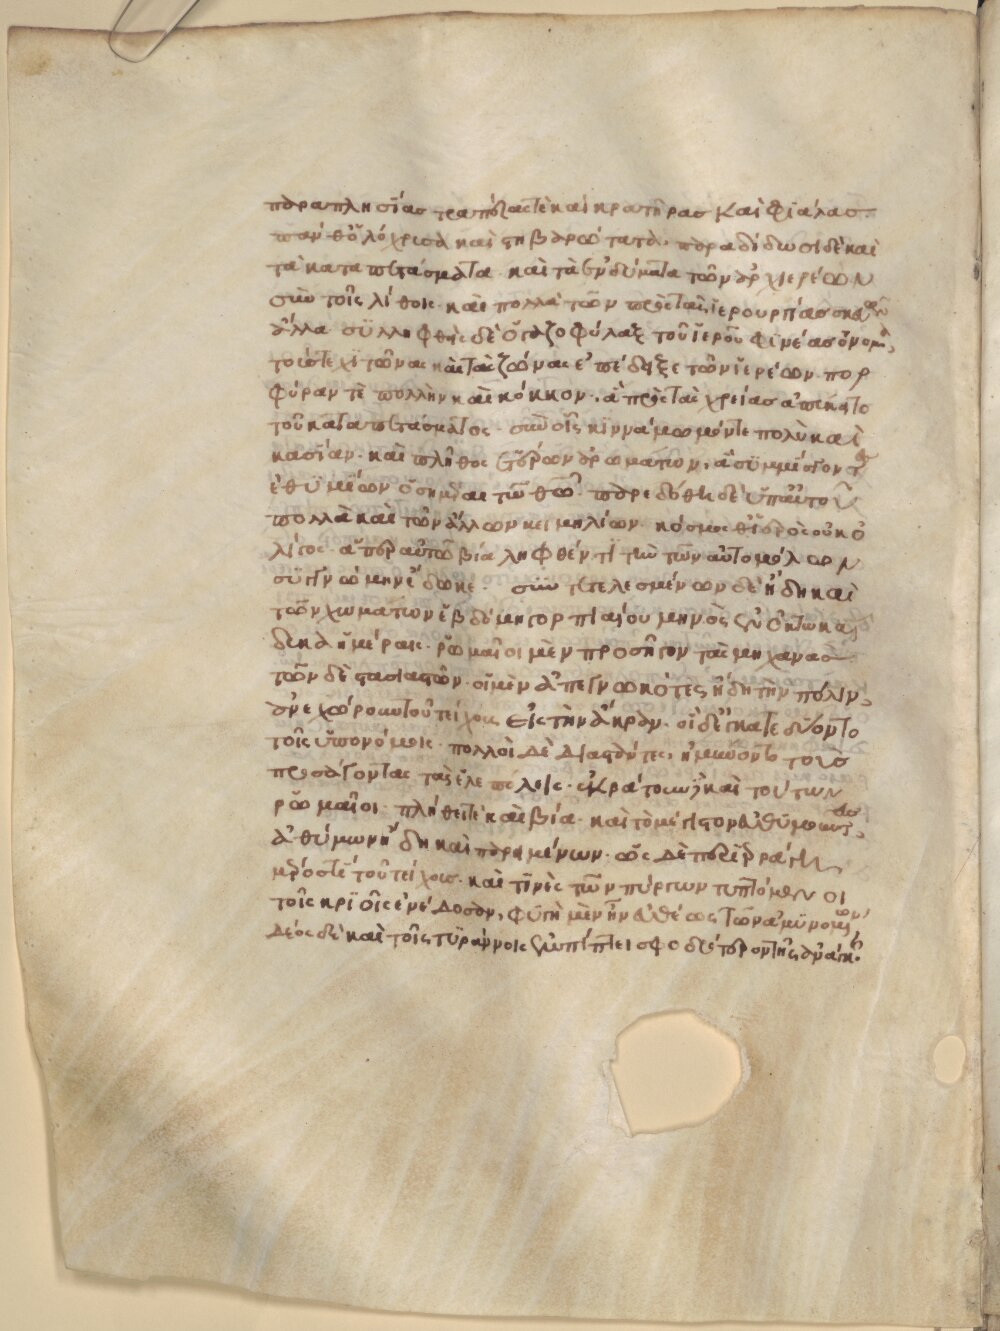 παραπλησίας τραπέζας τὲ καὶ κρατῆρας καὶ φιάλας
παν θ ὁλόχρυσα καὶ στιβαρώτατα. παραδίδωσι δὲ καὶ
τὰ καταπετάσματα καὶ τὰ ἐνδύματα τῶν ἀρχιερέων
σὺν τοῖς λίθοις. καὶ πολλὰ τῶν πρὸς τὰς ἱερουργίας σκευῶν
ἄλλα. συλληφθεὶς δὲ ὁ γαζοφύλαξ τοῦ ἱεροῦ φινέας ὄνομα,
τούς τε χιτῶνας καὶ τὰς ζώνας ἐπέδειξε τῶν ἱερέων. πορ
φύραν τὲ πολλὴν καὶ κόκκον. ἃ πρὸς τὰς χρείας ἀπέκειτο
τοῦ καταπετάσματος. σὺν οἷς κιννάμωμόν τε πολὺ καὶ
κασίαν. καὶ πλῆθος ἑτέρων ἀρωμάτων, ἃ συμμίσγοντες
ἐθυμίων ὁσημέραι τῶ θεῶ. παρεδόθη δὲ ὑπ αὐτοῦ
πολλὰ καὶ τῶν ἄλλων κειμηλίων. κόσμος θ ἱερὸς οὐκ ὀ
λίγος. ἅπερ αὐτῶ βία ληφθέντι τὴν τῶν αὐτομόλων
συγγνώμην ἔδωκε. συντετελεσμένων δὲ ἤδη καὶ
τῶν χωμάτων ἑβδόμη γορπιαίου μηνὸς ἐν ὀκτωκαι
δεκα ἡμέραις. ῥωμαῖοι μὲν προσῆγον τὰς μηχανάς
τῶν δὲ στασιαστῶν. οἱ μὲν ἀπεγνωκότες ἤδη τὴν πόλιν,
ἀνεχώρουν τοῦ τείχους εἰς τὴν ἄκραν. οἱ δὲ ἐγκατεδύοντο
τοῖς ὑπονόμοις. πολλοὶ δὲ διαστάντες, ἠμύνοντο τοὺς
προσάγοντας τὰς ἑλεπόλεις. ἐκράτουν καὶ τούτων
ῥωμαῖοι. πλήθει τὲ καὶ βία. καὶ τὸ μέγιστον εὐθυμοῦντες,
ἀθύμων ἤδη καὶ παρειμένων. ὡς δὲ περιερράγη
μέρος τὲ τοῦ τείχους. καὶ τινὲς τῶν πύργων τυπτόμενοι
τοῖς κριοῖς ἐνέδοσαν, φυγὴ μὲν ἦν εὐθέως τῶν ἀμυνομένων,
δέος δὲ καὶ τοῖς τυράννοις ἐμπίπτει σφοδρότερον τῆς ἀνάγκης.